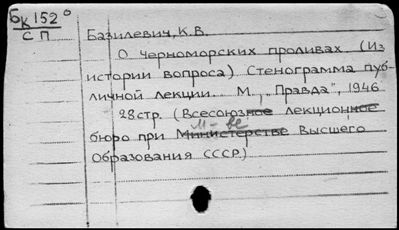 Бк 152°
СП
Базилевич, К.В.
О черноморских проливах. (Из
истории вопроса). Стенограмма пуб-
личной лекции. М., „Правда", 1946
28 стр. (Всесоюзное лекционное
М-ве
бюро при Министерстве Высшего
Образования СССР)